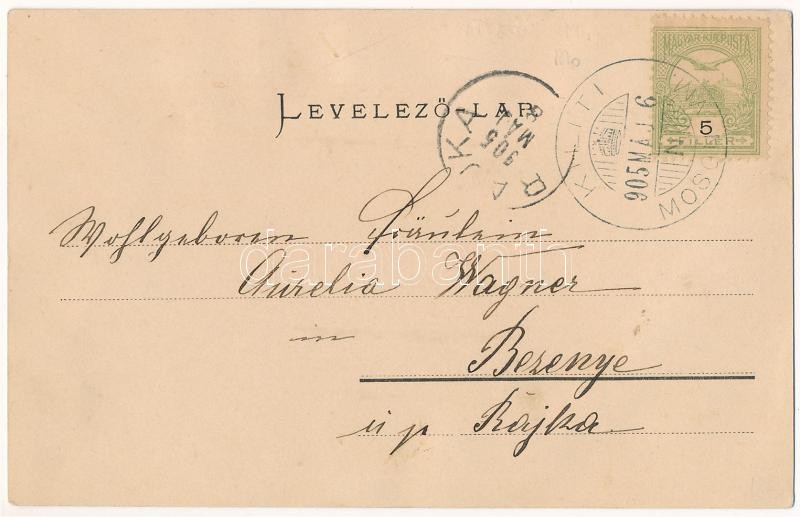 MAGYAR KIR. POSTA
5
FILLÉR
905 MÁJ 6
MOSO
RAJKA
905
MÁJ
LEVELEZŐ-LAP
Wohlgeboren Fräulein
Aurelia Wagner
in
Bezenye
u p Rajka
darabanth